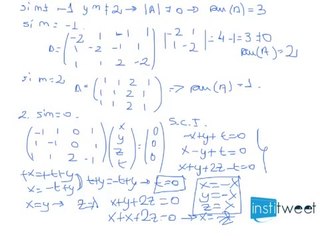 si m≠-1 y m≠2 → |A|≠0 → ran(A)=3
si m=-1.
-2 1 -1 1
1 -2 -1 1
1 1 2 -2
|-2 1
1 -2| = 4-1=3≠0
ran(A)=2
si m=2
1 1 2 1
1 1 2 1
1 1 2 1
=> ran(A)=1.
2. si m=0.
S.C.I.
(-1 1 0 1
1 -1 0 1
1 1 2 -1) (x y z t) = (0 0 0)
-x+y+t=0
x-y+t=0
x+y+2z-t=0
x=-t+y
t+y=-t+y → t=0
x=y →
x+y+2z=0
x+x+2z=0 →
institweet